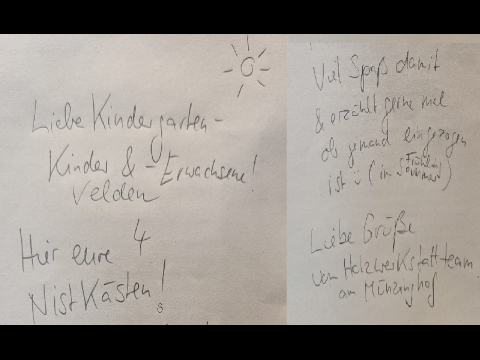 Liebe Kindergarten-
Kinder & -Erwachsene!
Velden
Hier eure 4
Nistkästen!
Viel Spaß damit
& erzählt gerne mal
ob jemand eingezogen
ist ü (im Frühling
Sommer)
Liebe Grüße
vom Holzwerkstattteam
am Münzinghof